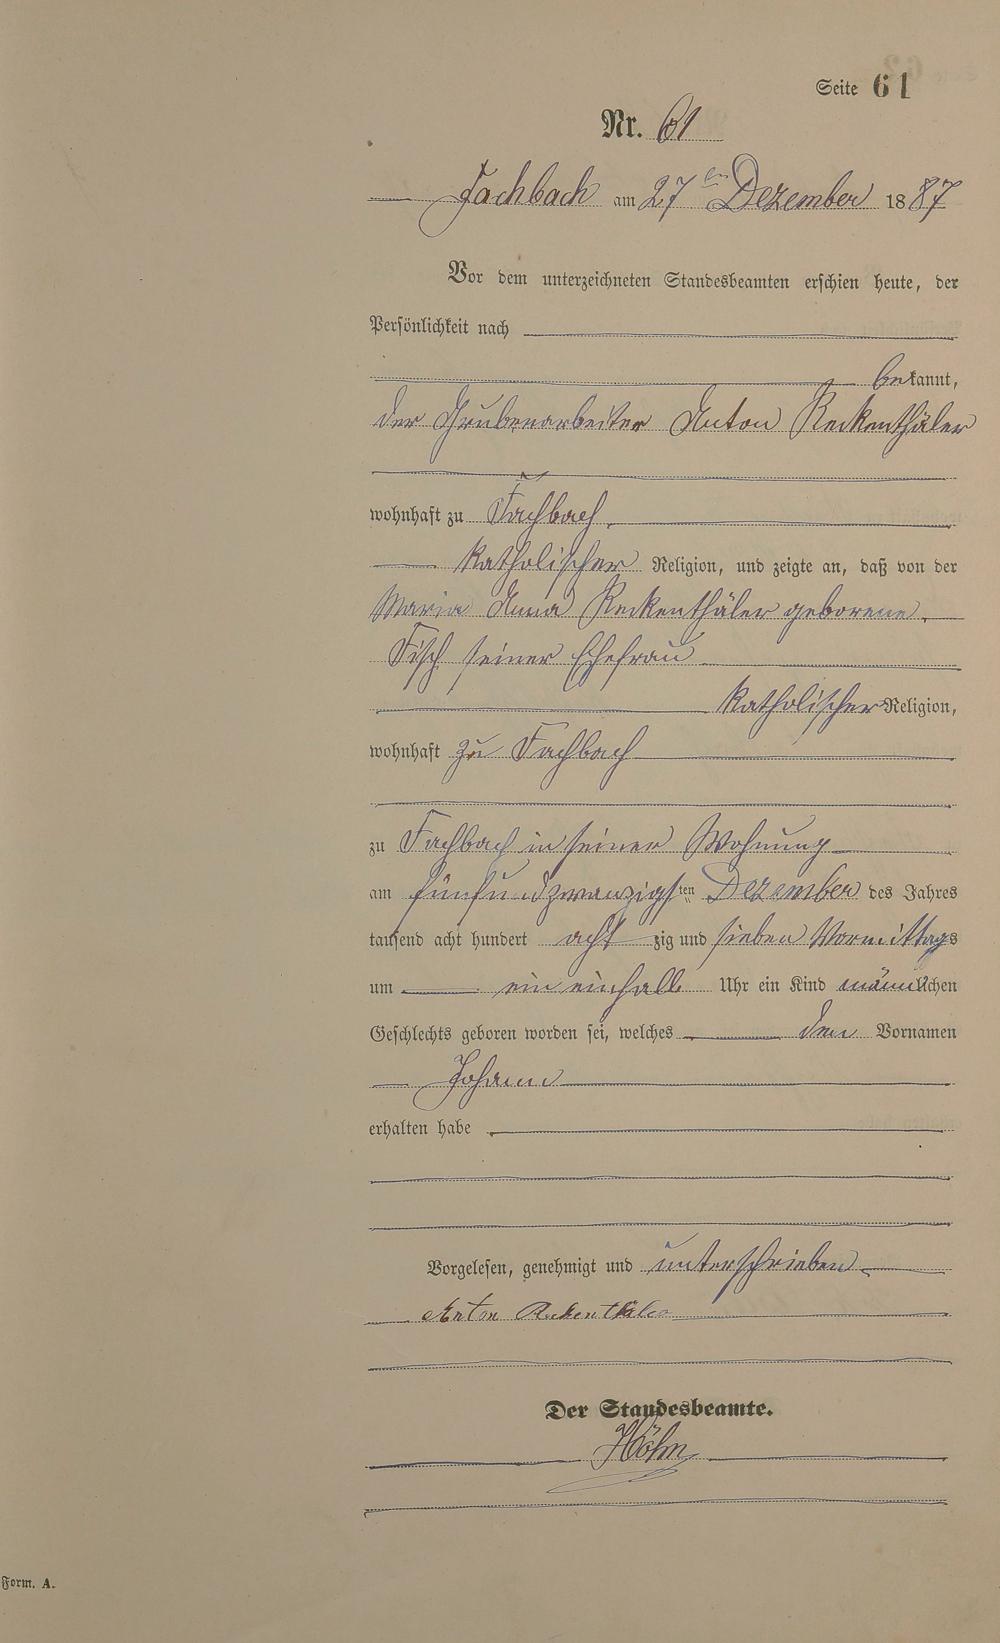 Seite 61
Nr. 61
Fachbach am 27ten Dezember 1887
Vor dem unterzeichneten Standesbeamten erschien heute, der
Persönlichkeit nach
bekannt,
der Grubenarbeiter Anton Reckenthäler
wohnhaft zu Fachbach,
katholischer Religion, und zeigte an, daß von der
Maria Anna Reckenthäler geborene
Fisch seiner Ehefrau
katholischer Religion,
wohnhaft zu Fachbach
zu Fachbach in seiner Wohnung
am fünfundzwanzigsten Dezember des Jahres
tausend acht hundert acht zig und sieben Vormittags
um ein einhalb Uhr ein Kind männlichen
Geschlechts geboren worden sei, welches den Vornamen
Johann
erhalten habe
Vorgelesen, genehmigt und unterschrieben
Anton Reckenthäler
Der Standesbeamte.
Höhn
Form. A.